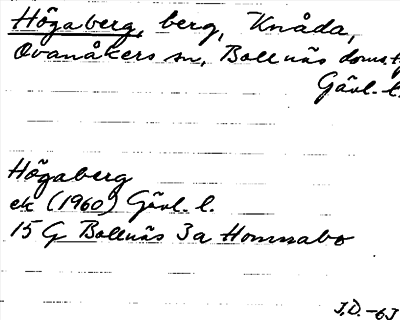 Högaberg, berg, Knåda,
Ovanåkers sn, Bollnäs doms.
Gävl. l.
Högaberg
ek (1960) Gävl. l.
15 G Bollnäs 3a Homnabo
J.D. -63